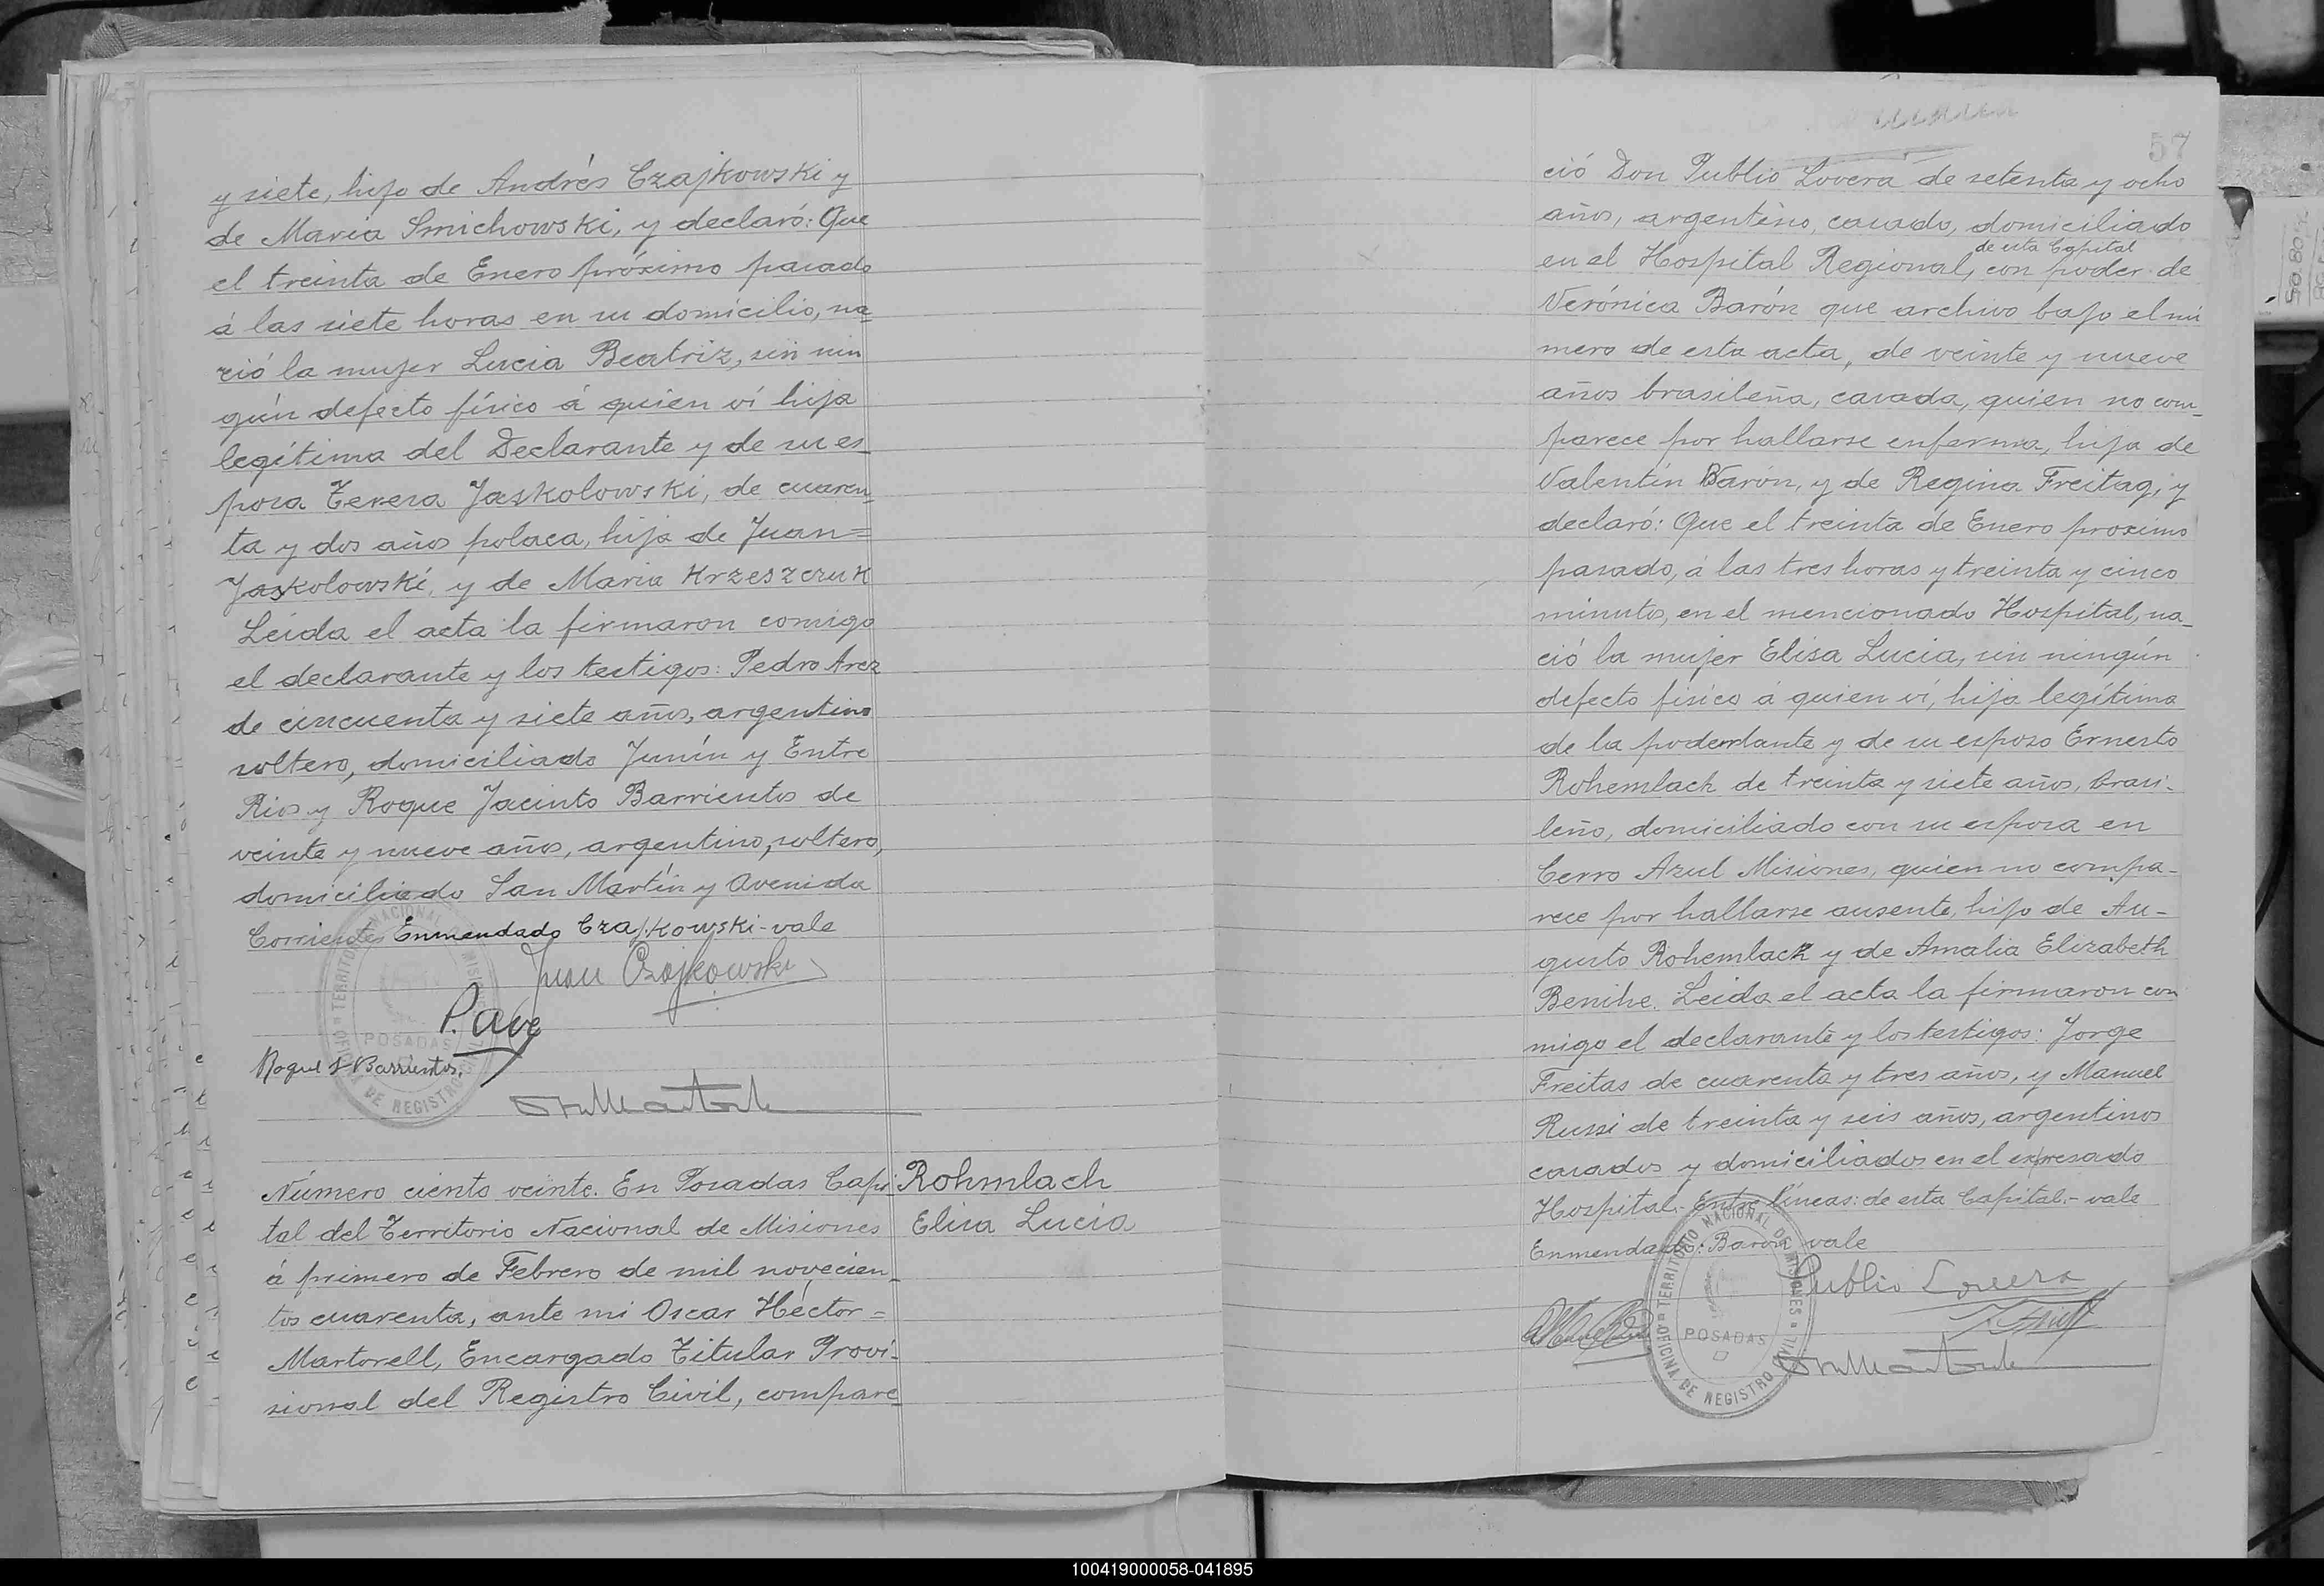 y siete, hijo de Andrés Czajkowski y
de Maria Smichowski, y declaró: Que
el treinta de Enero próximo pasado
á las siete horas en su domicilio, na=
ció la mujer Lucia Beatriz, sin nin
gún defecto físico á quien ví hija
legítima del Declarante y de su es_
posa Teresa Jaskolowski, de cuaren_
ta y dos años polaca, hija de Juan=
Jaskolowski, y de Maria Krzeszczuk
Leida el acta la firmaron comigo
el declarante y los testigos: Pedro Arez
de cincuenta y siete años, argentino
soltero, domiciliado Junín y Entre
Rios y Roque Jacinto Barrientos de
veinte y nueve años, argentino, soltero,
domiciliado San Martín y Avenida
Corrientes Enmendado Czajkowski-vale
Juan Czajkowski
Roque J Barrientos.
OFICINA DE REGISTRO CIVIL TERRITORIO NACIONAL DE MISIONES
POSADAS
Número ciento veinte. En Posadas Capi
tal del Territorio Nacional de Misiones
á primero de Febrero de mil novecien_
tos cuarenta, ante mi Oscar Héctor=
Martorell, Encargado Titular Provi-
sional del Registro Civil, compare_
Rohmlach
Elisa Lucia
57
ció Don Publio Lovera de setenta y ocho
años, argentino, casado, domiciliado
de esta Capital
en el Hospital Regional, con poder de
Verónica Barón que archivo bajo el nú
mero de esta acta, de veinte y nueve
años brasileña, casada, quien no com_
parece por hallarse enferma, hija de
Valentín Barón, y de Regina Freitag, y
declaró: Que el treinta de Enero proximo
pasado, á las tres horas y treinta y cinco
minutos, en el mencionado Hospital, na_
ció la mujer Elisa Lucia, sin ningún
defecto físico á quien ví, hija legítima
de la poderdante y de su esposo Ernesto
Rohemlach de treinta y siete años, brasi-
leño, domiciliado con su esposa en
Cerro Azul Misiones, quien no compa-
rece por hallarse ausente, hijo de Au-
gusto Rohemlack y de Amalia Elizabeth
Benihe. Leida el acta la firmaron con
migo el declarante y los testigos: Jorge
Freitas de cuarenta y tres años, y Manuel
Russi de treinta y seis años, argentinos
casados y domiciliados en el expresado
Hospital.- Entre líneas: de esta Capital.- vale
Enmendado: Barón vale
Publio Lovera
OFICINA DE REGISTRO CIVIL TERRITORIO NACIONAL DE MISIONES
POSADAS
100419000058-041895